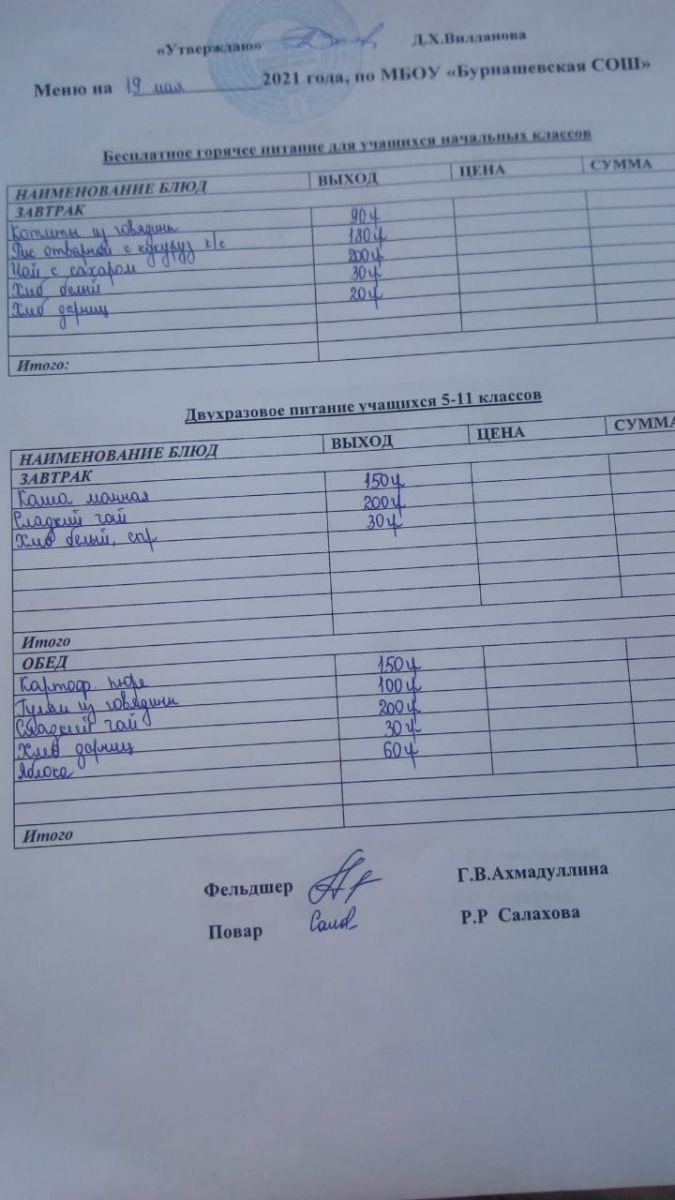 «Утверждаю» Д.Х.Вилданова
Меню на 19 мая 2021 года, по МБОУ «Бурнашевская СОШ»
Бесплатное горячее питание для учащихся начальных классов
НАИМЕНОВАНИЕ БЛЮД ВЫХОД ЦЕНА СУММА
ЗАВТРАК
Котлеты из говядины 90г
Рис отварной с кукуруз к/с 180г
Чай с сахаром 200г
Хлеб белый 30г
Хлеб дарниц 20г
Итого:
Двухразовое питание учащихся 5-11 классов
НАИМЕНОВАНИЕ БЛЮД ВЫХОД ЦЕНА СУММА
ЗАВТРАК
Каша манная 150г
Сладкий чай 200г
Хлеб белый, 30г
Итого
ОБЕД
Картоф. пюре 150г
Гуляш из говядины 100г
Сладкий чай 200г
Хлеб дарниц 30г
Яблоко 60г
Итого
Фельдшер Г.В.Ахмадуллина
Повар Р.Р Салахова